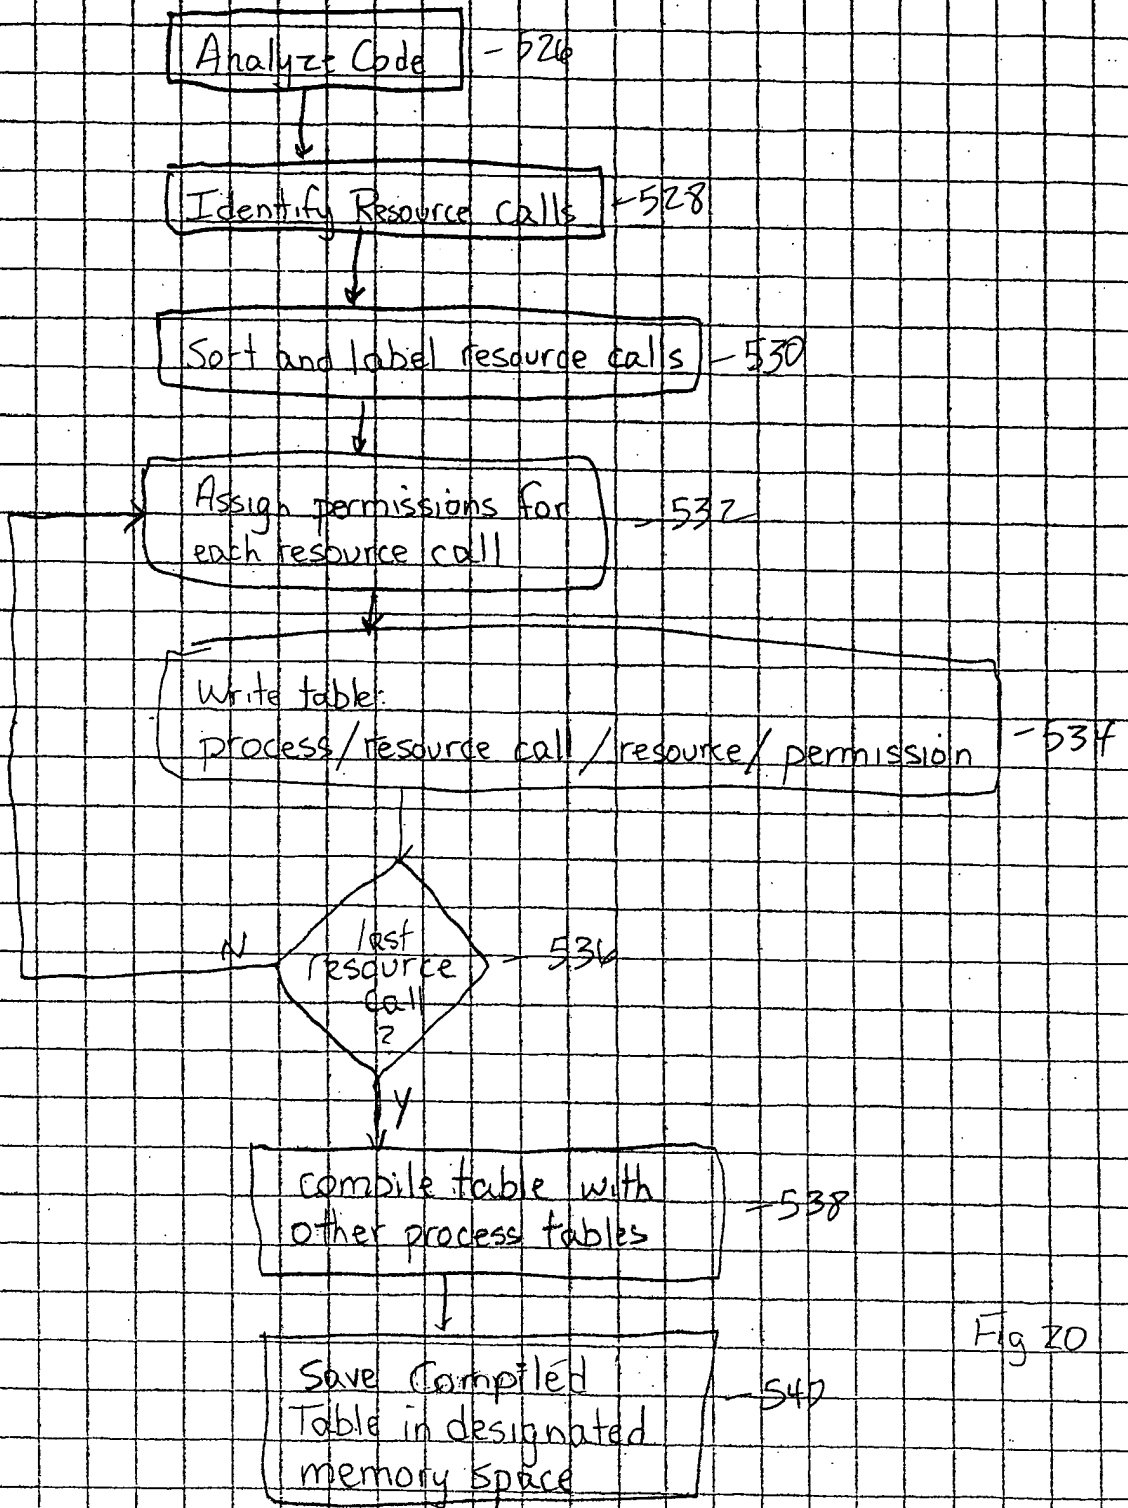 Analyze Code - 526
Identify Resource calls - 528
Sort and label resource calls - 530
Assign permissions for
each resource call - 532
Write table:
process/resource call/resource/permission - 534
last
resource
call
?
N
- 536
Y
compile table with
other process tables - 538
Save Compiled
Table in designated
memory space - 540
Fig 20